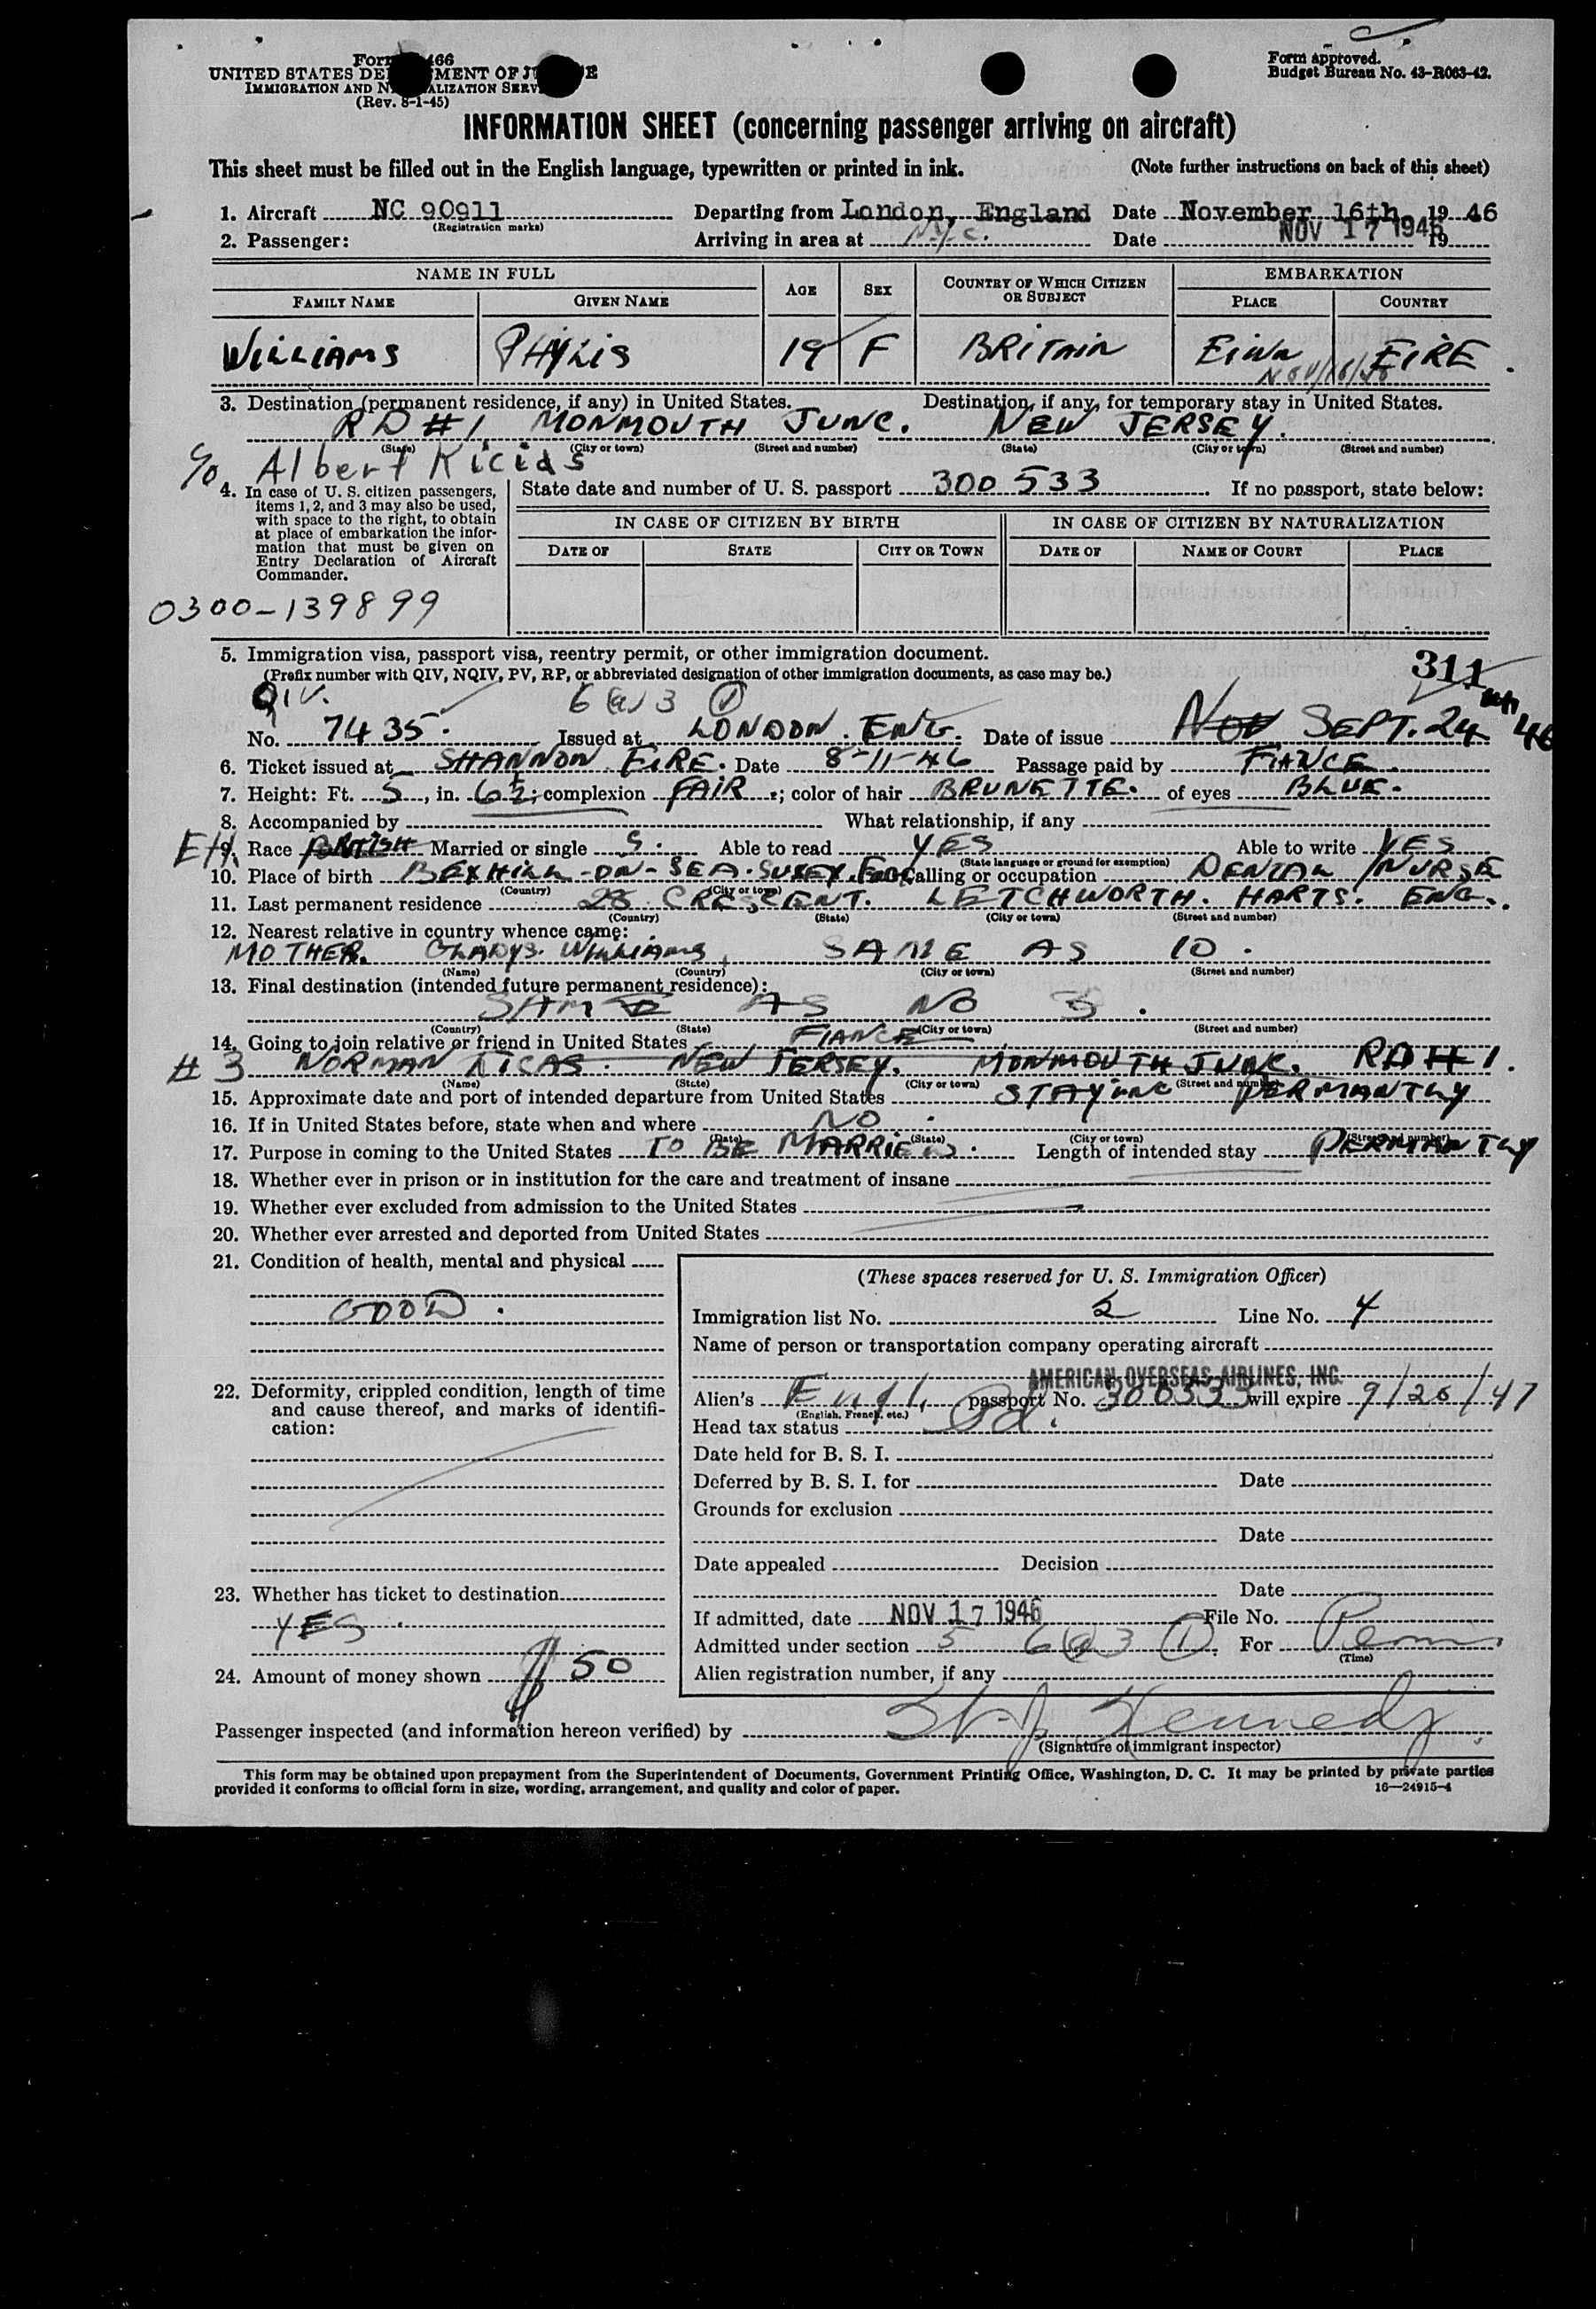 Form 466
UNITED STATES DEPARTMENT OF JUSTICE
IMMIGRATION AND NATURALIZATION SERVICE
(Rev. 8-1-45)
Form approved.
Budget Bureau No. 43-R063-42.
INFORMATION SHEET (concerning passenger arriving on aircraft)
This sheet must be filled out in the English language, typewritten or printed in ink. (Note further instructions on back of this sheet)
1. Aircraft NC 90911 Departing from London, England Date November 16th, 19 46
(Registration marks)
2. Passenger: Arriving in area at N.Y.C. Date NOV 17 1946 19
NAME IN FULL AGE SEX COUNTRY OF WHICH CITIZEN OR SUBJECT EMBARKATION
FAMILY NAME GIVEN NAME PLACE COUNTRY
WILLIAMS PHYLIS 19 F BRITAIN EIRE
NOV/16/46
3. Destination (permanent residence, if any) in United States. Destination, if any, for temporary stay in United States.
RD #1 MONMOUTH JUNC. NEW JERSEY.
(State) (City or town) (Street and number) (State) (City or town) (Street and number)
c/o Albert Kicias
4. In case of U. S. citizen passengers, items 1, 2, and 3 may also be used, with space to the right, to obtain at place of embarkation the information that must be given on Entry Declaration of Aircraft Commander.
State date and number of U. S. passport 300 533 If no passport, state below:
IN CASE OF CITIZEN BY BIRTH IN CASE OF CITIZEN BY NATURALIZATION
DATE OF STATE CITY OR TOWN DATE OF NAME OF COURT PLACE
0300-139899
5. Immigration visa, passport visa, reentry permit, or other immigration document.
(Prefix number with QIV, NQIV, PV, RP, or abbreviated designation of other immigration documents, as case may be.)
311
QIV. 6 (a) 3 (1)
No. 7435. Issued at LONDON. ENG. Date of issue NOV SEPT. 24 46
6. Ticket issued at SHANNON EIRE. Date 8-11-46 Passage paid by FIANCE.
7. Height: Ft. 5, in. 6½; complexion FAIR.; color of hair BRUNETTE. of eyes BLUE.
8. Accompanied by What relationship, if any
9. Race BRITISH Married or single S. Able to read YES Able to write YES
(State language or ground for exemption)
10. Place of birth BEXHILL-ON-SEA. SUSEX. ENG. Calling or occupation DENTAL NURSE
(Country) (City or town)
11. Last permanent residence 28 CRESCENT. LETCHWORTH. HARTS. ENG.
(Country) (State) (City or town) (Street and number)
12. Nearest relative in country whence came:
MOTHER. GLADYS. WILLIAMS, SAME AS 10.
(Name) (Country) (City or town) (Street and number)
13. Final destination (intended future permanent residence):
SAME AS NO 3.
(Country) (State) (City or town) (Street and number)
14. Going to join relative or friend in United States FIANCE
#3 NORMAN KICAS. NEW JERSEY. MONMOUTH JUNC. RD #1.
(Name) (State) (City or town) (Street and number)
15. Approximate date and port of intended departure from United States STAYING PERMANTLY
16. If in United States before, state when and where NO.
(Date) (State) (City or town) (Street and number)
17. Purpose in coming to the United States TO BE MARRIED. Length of intended stay PERMANTLY
18. Whether ever in prison or in institution for the care and treatment of insane
19. Whether ever excluded from admission to the United States
20. Whether ever arrested and deported from United States
21. Condition of health, mental and physical
GOOD.
22. Deformity, crippled condition, length of time and cause thereof, and marks of identification:
23. Whether has ticket to destination
YES.
24. Amount of money shown $50
(These spaces reserved for U. S. Immigration Officer)
Immigration list No. 2 Line No. 4
Name of person or transportation company operating aircraft
AMERICAN OVERSEAS AIRLINES, INC.
Alien's Engl. passport No. 300533 will expire 9/26/47
(English, French, etc.)
Head tax status Pd.
Date held for B. S. I.
Deferred by B. S. I. for Date
Grounds for exclusion
Date
Date appealed Decision
Date
If admitted, date NOV 17 1946 File No.
Admitted under section 5 6(a)3 (1). For Perm
(Time)
Alien registration number, if any
Passenger inspected (and information hereon verified) by Kennedy
(Signature of immigrant inspector)
This form may be obtained upon prepayment from the Superintendent of Documents, Government Printing Office, Washington, D. C. It may be printed by private parties
provided it conforms to official form in size, wording, arrangement, and quality and color of paper. 16—24915-4